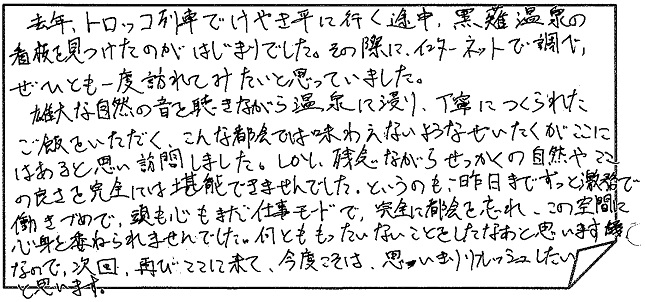 去年、トロッコ列車でけやき平に行く途中、黒薙温泉の
看板を見つけたのがはじまりでした。その際に、インターネットで調べ、
ぜひとも一度訪れてみたいと思っていました。
雄大な自然の音を聴きながら温泉に浸り、丁寧につくられた
ご飯をいただく、こんな都会では味わえないようなぜいたくがここに
はあると思い訪問しました。しかし、残念ながらせっかくの自然やここ
の良さを完全には堪能できませんでした。というのも、昨日までずっと激務で
働きづめで、頭も心もまだ仕事モードで、完全に都会を忘れ、この空間に
心身を委ねられませんでした。何とももったいないことをしたなあと思います
なので、次回、再びここに来て、今度こそは、思いきりリフレッシュしたい
と思います。